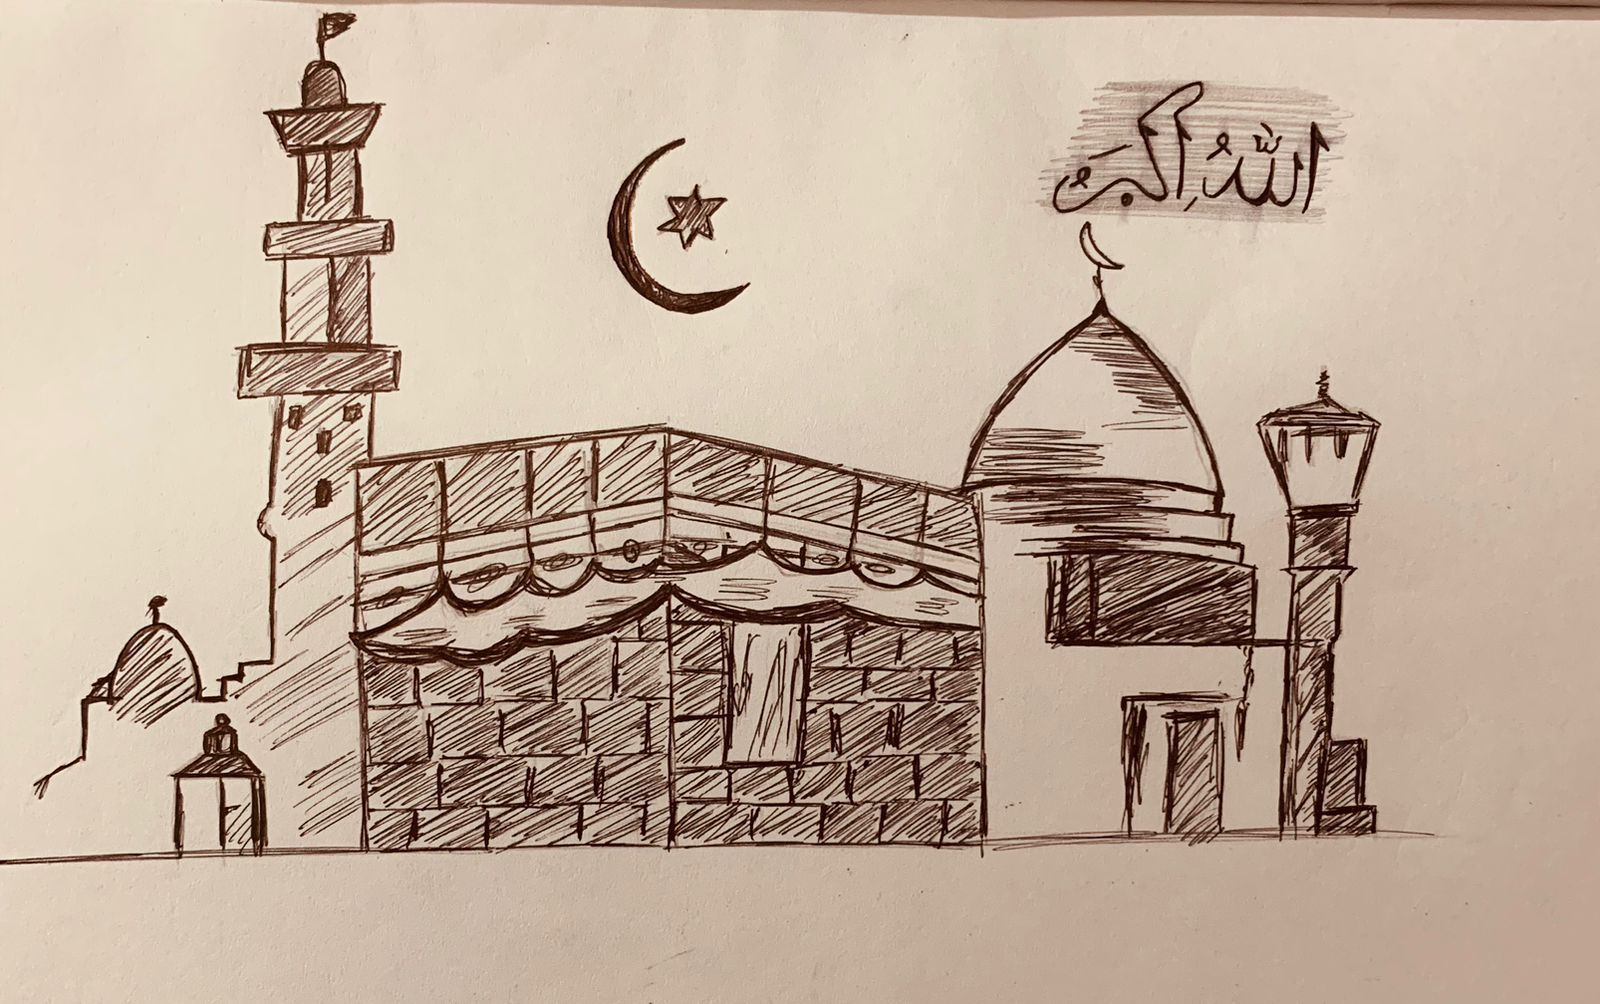 اللّهُ اكبَر